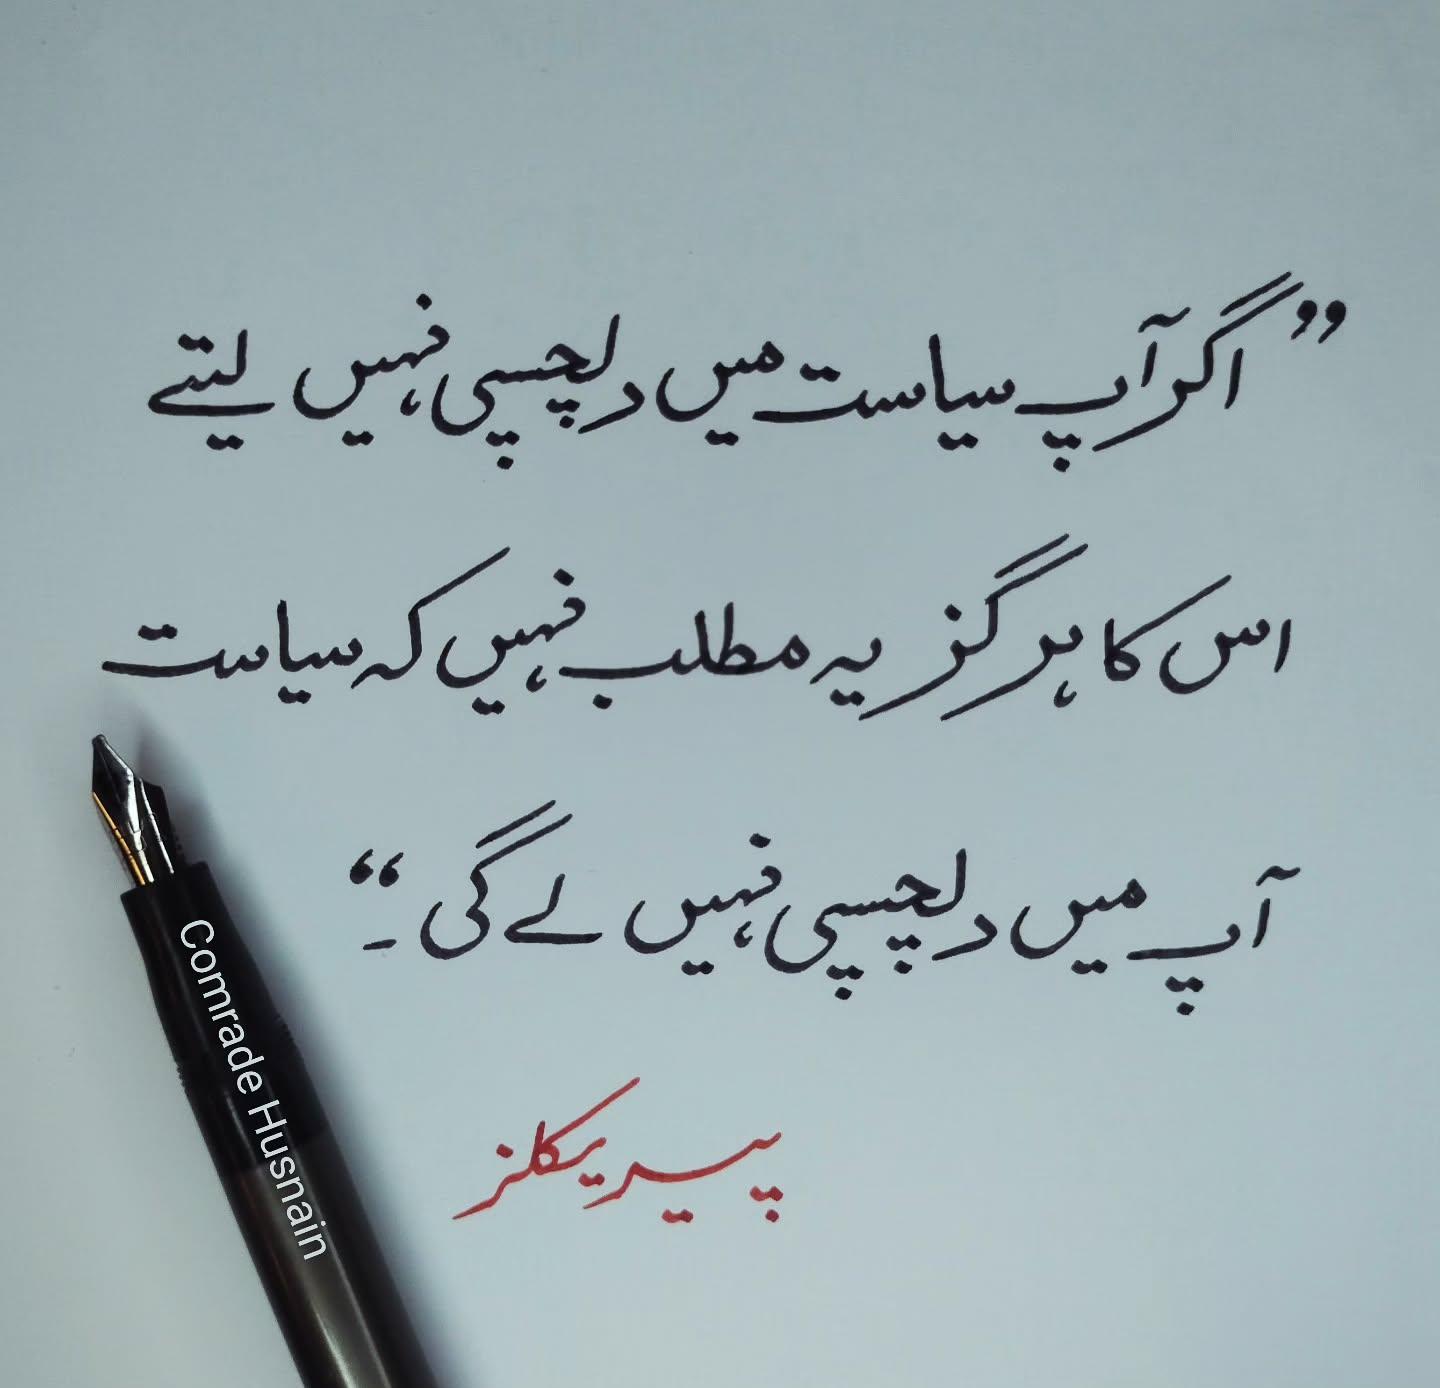 ”اگر آپ سیاست میں دلچسپی نہیں لیتے
اس کا ہرگز یہ مطلب نہیں کہ سیاست
آپ میں دلچسپی نہیں لے گی۔“
پیریکلز
Comrade Husnain